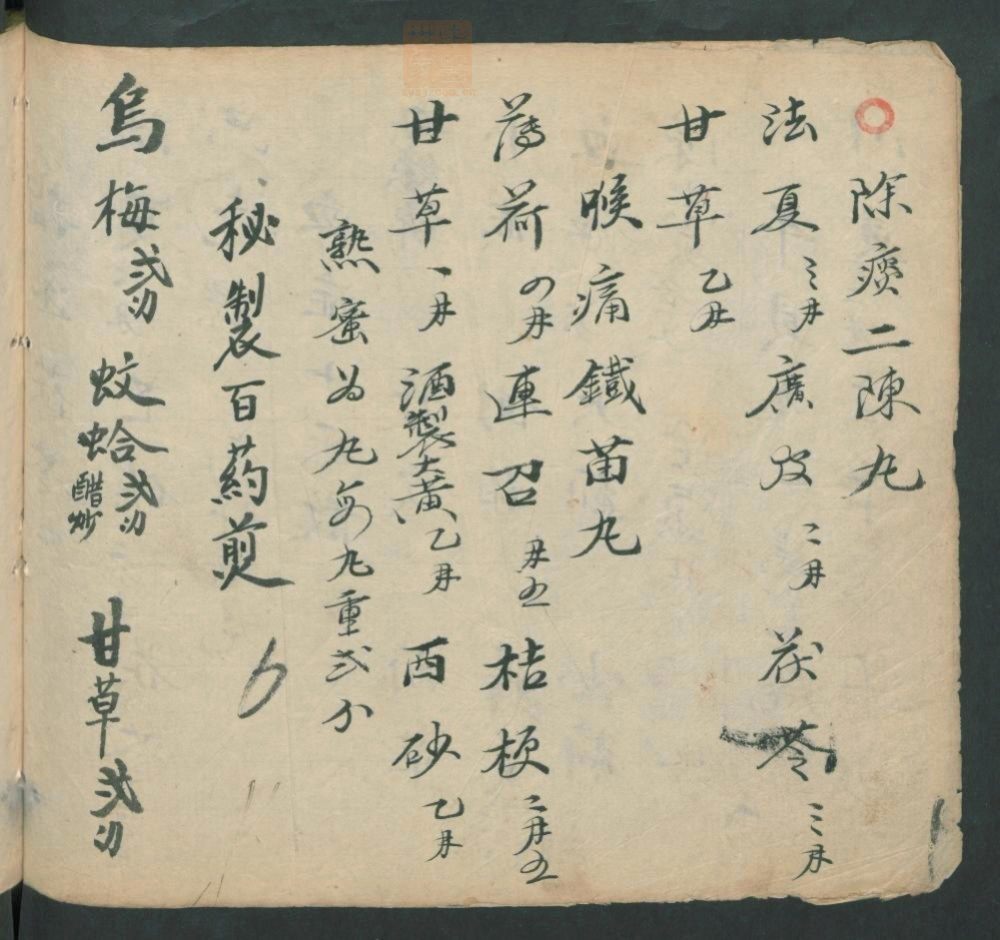 除痰二陳丸
法夏 三两 廣皮 二两 茯苓 三两
甘草 乙两
喉痛鐵苗丸
薄荷 四两 連召 两五 桔梗 二两五
甘草 一两 酒製大黃 乙两 西砂 乙两
熟蜜为丸每丸重弍分
秘製百药煎
烏梅 弍刃 蚊蛤 弍刃 醋炒 甘草 弍刃